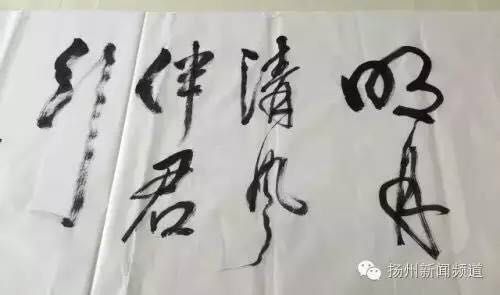 明月
清风
伴君
行
扬州新闻频道